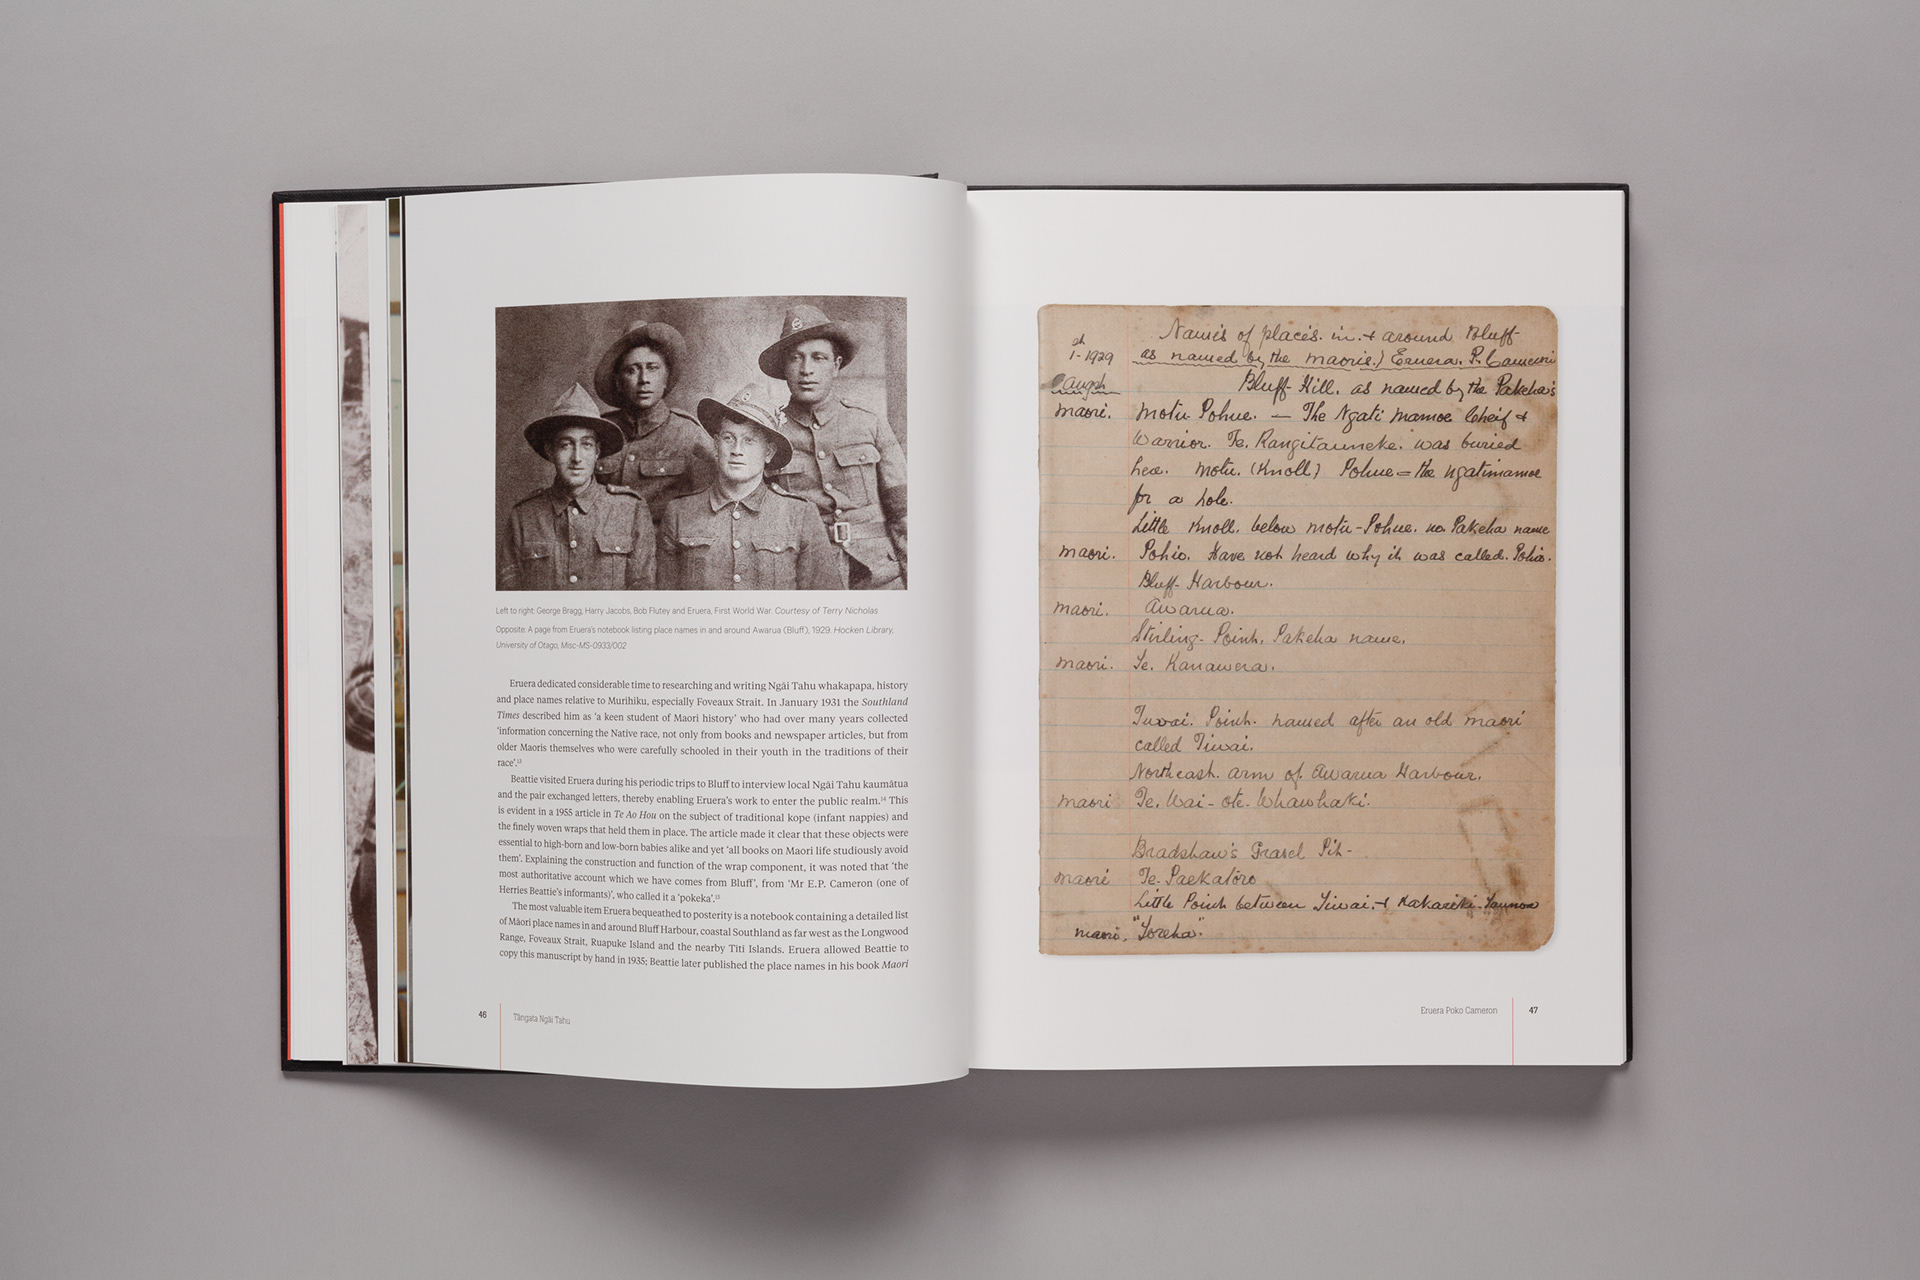 Left to right: George Bragg, Harry Jacobs, Bob Flutey and Eruera, First World War. Courtesy of Terry Nicholas
Opposite: A page from Eruera's notebook listing place names in and around Awarua (Bluff), 1929. Hocken Library,
University of Otago, Misc-MS-0933/002
Eruera dedicated considerable time to researching and writing Ngāi Tahu whakapapa, history
and place names relative to Murihiku, especially Foveaux Strait. In January 1931 the Southland
Times described him as 'a keen student of Maori history' who had over many years collected
'information concerning the Native race, not only from books and newspaper articles, but from
older Maoris themselves who were carefully schooled in their youth in the traditions of their
race'.¹³
Beattie visited Eruera during his periodic trips to Bluff to interview local Ngāi Tahu kaumātua
and the pair exchanged letters, thereby enabling Eruera's work to enter the public realm.¹⁴ This
is evident in a 1955 article in Te Ao Hou on the subject of traditional kope (infant nappies) and
the finely woven wraps that held them in place. The article made it clear that these objects were
essential to high-born and low-born babies alike and yet 'all books on Maori life studiously avoid
them'. Explaining the construction and function of the wrap component, it was noted that 'the
most authoritative account which we have comes from Bluff', from 'Mr E.P. Cameron (one of
Herries Beattie's informants)', who called it a 'pokeka'.¹⁵
The most valuable item Eruera bequeathed to posterity is a notebook containing a detailed list
of Māori place names in and around Bluff Harbour, coastal Southland as far west as the Longwood
Range, Foveaux Strait, Ruapuke Island and the nearby Titi Islands. Eruera allowed Beattie to
copy this manuscript by hand in 1935; Beattie later published the place names in his book Maori
46 Tāngata Ngāi Tahu
Names of places in & around Bluff
1-1929 as named by the maorie.) Eruera. P. Cameron
Bluff Hill. as named by the Pakeha's
maori. Motu Pohue. — The Ngati Mamoe Cheif &
Warrior. Te. Rangitauneke. was buried
here. Motu. (Knoll) Pohue = the Ngatimamoe
for a hole.
Little Knoll. below Motu-Pohue. no Pakeha name
maori. Pohio. Have not heard why it was called. Pohio.
Bluff Harbour.
maori. Awarua.
Stirling Point. Pakeha name.
maori. Te. Kanawera.
Tiwai. Point. named after an old maori
called Tiwai.
North east. arm of. Awarua Harbour.
maori Te. Wai-ote-Whawhaki.
Bradshaw's Gravel Pit-
maori Te-Paekatoro
Little Point between Tiwai & Kakariki
maori. "Toreha."
Eruera Poko Cameron 47